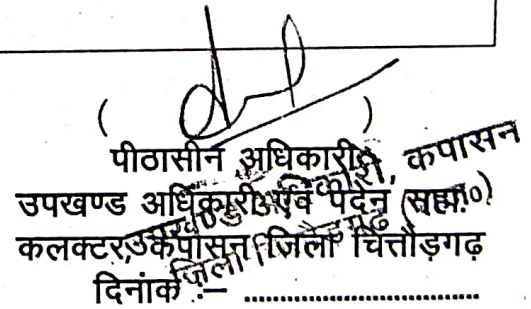 ( )
पीठासीन अधिकारी
उपखण्ड अधिकारी एवं पदेन सहा.
कलक्टर, कपासन जिला चित्तौड़गढ़
दिनांक :– ..............................
उपखण्ड अधिकारी, कपासन
जिला चित्तौड़गढ़ (राज०)